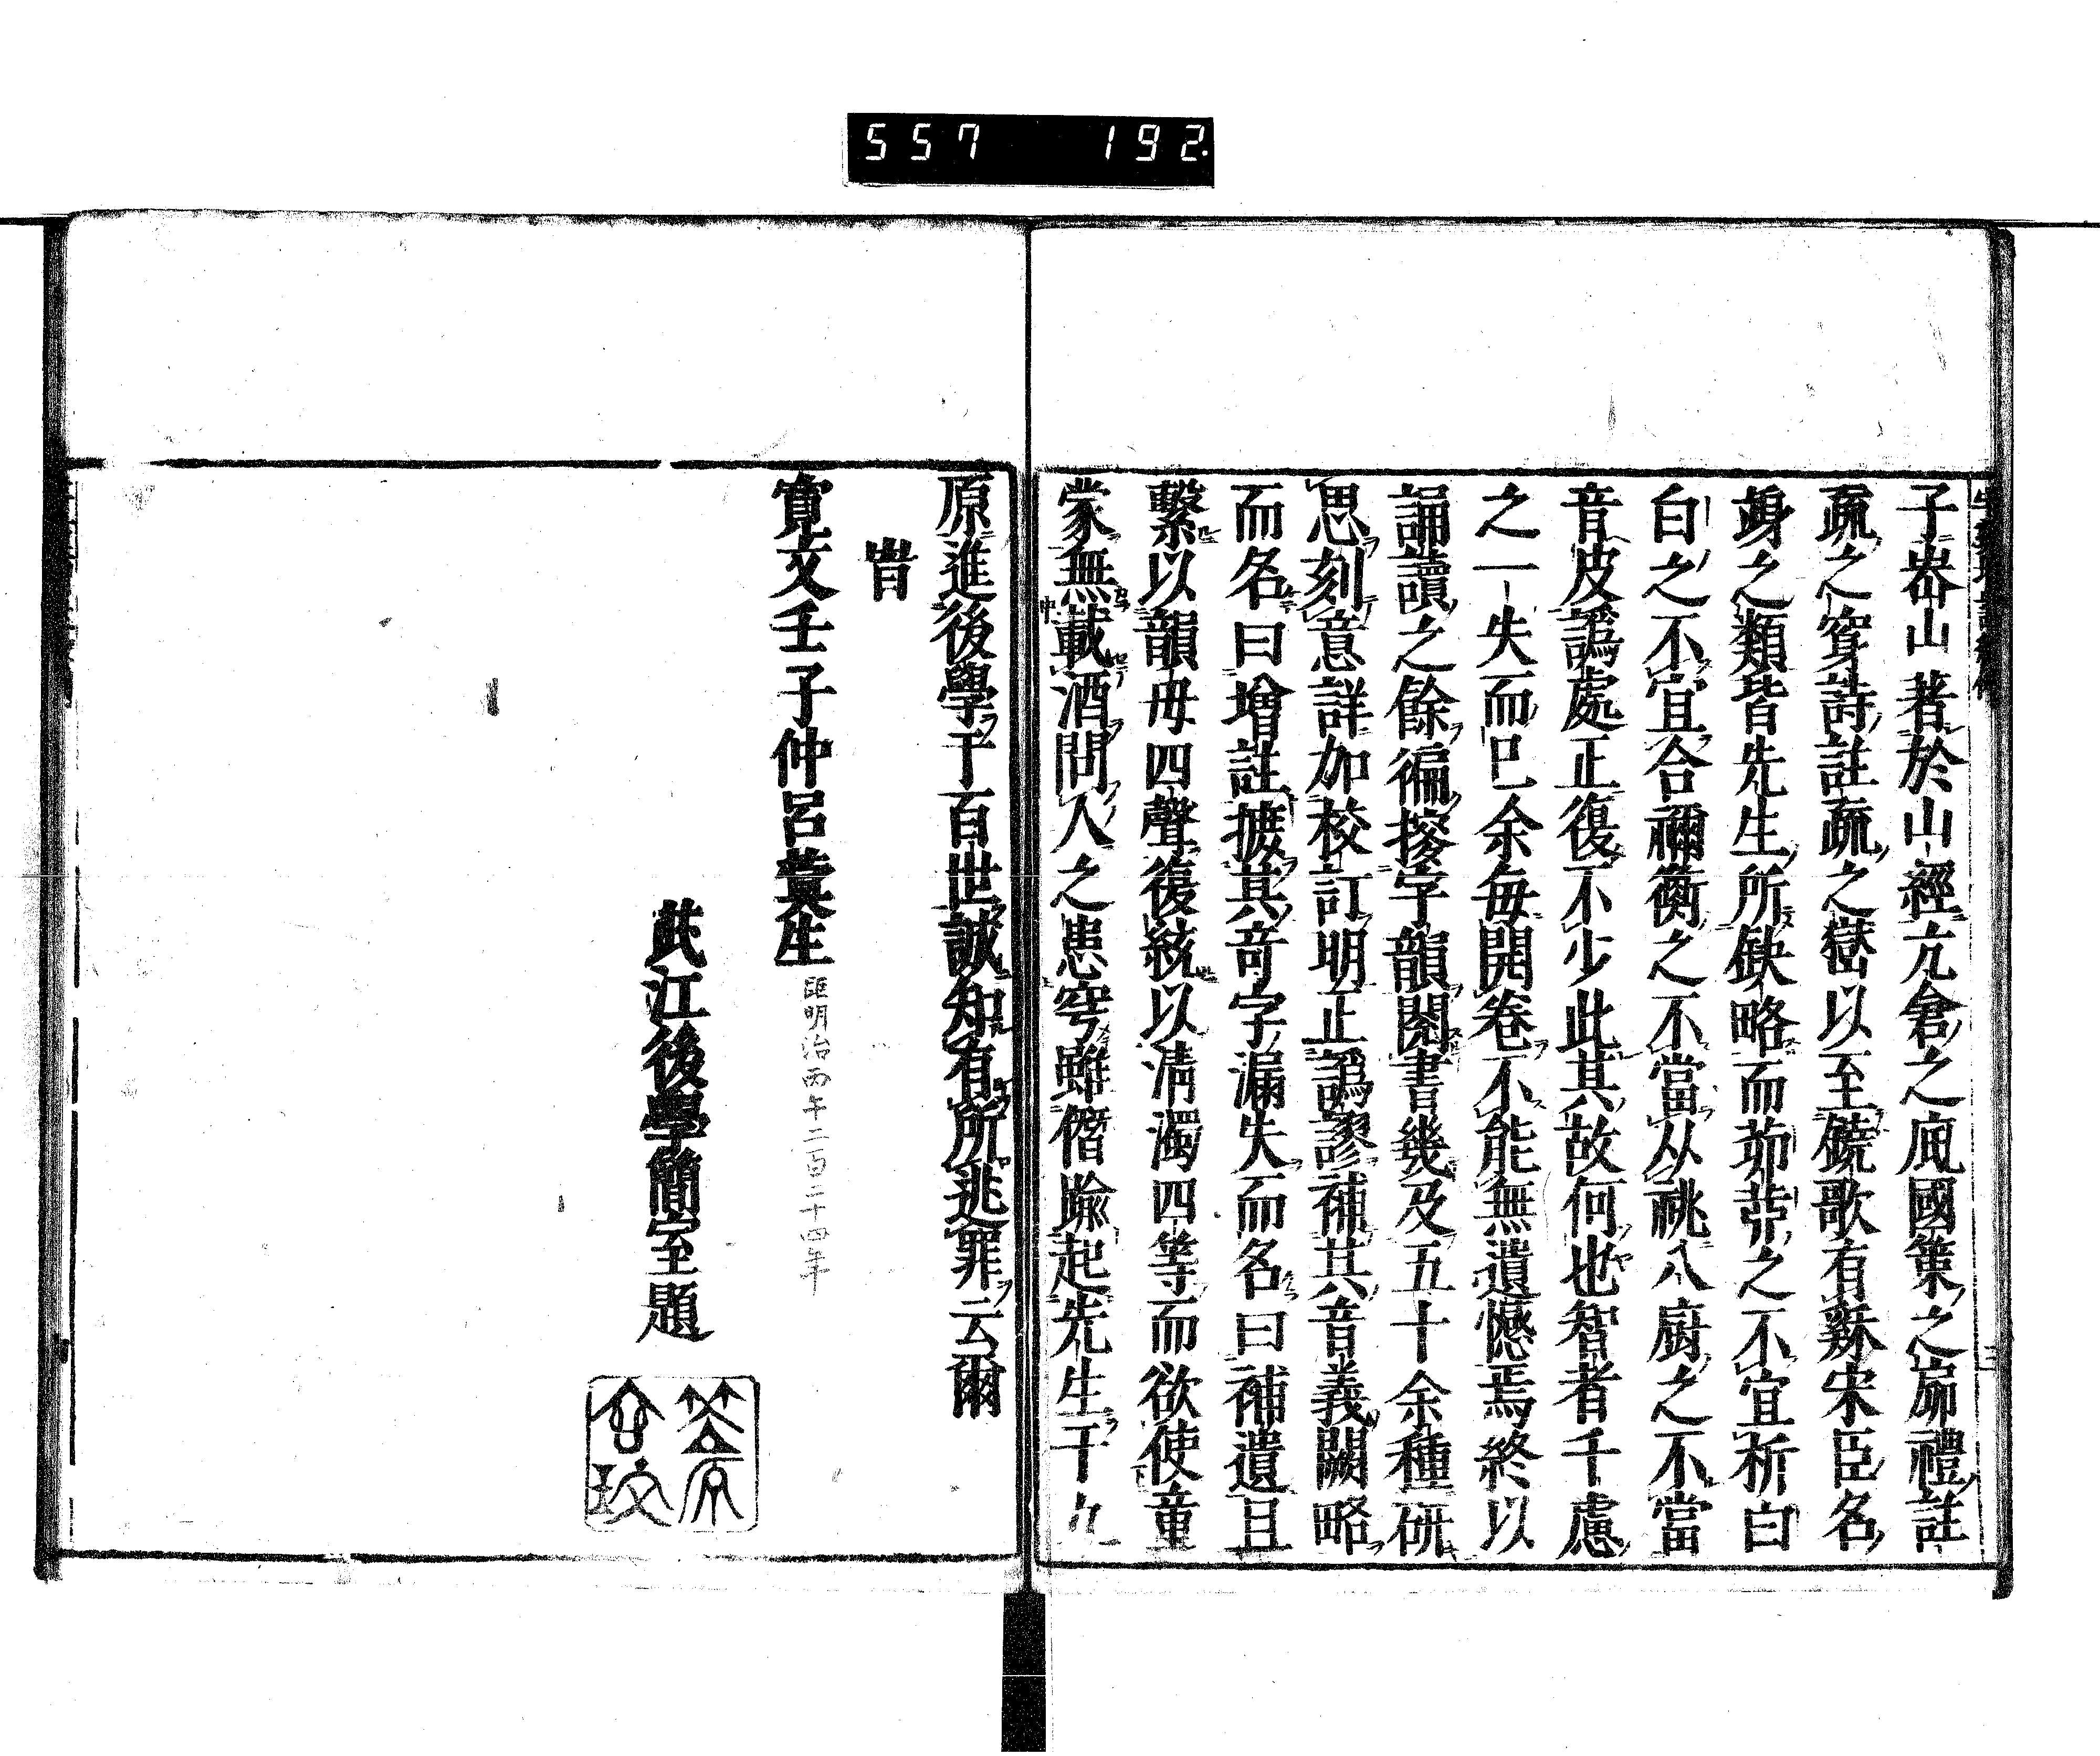 557 192
子嶅山著於山經亢倉之㡳國策之峁禮註
疏之穿詩註疏之嶽以至鐃歌有繇宋臣名
身之類皆先生所缺略而茆茆之不宜析白
白之不宜合禰衡之不當从祧八廚之不當
音皮譌處正復不少此其故何也智者千慮
之一失而已余每開卷不能無遺憾焉終以
誦讀之餘徧搜字韻閱書幾及五十余種研
思刻意詳加校訂明正譌謬補其音義闕略
而名曰增註摭其奇字漏失而名曰補遺且
繫以韻母四聲復統以清濁四等而欲使童
蒙無載酒問人之患突雖僭踰起先生于九
原進後學于百世誠知有所逃罪云爾
旹
寛文壬子仲呂蓂生
距明治丙午二百三十四年
江後學簡室題